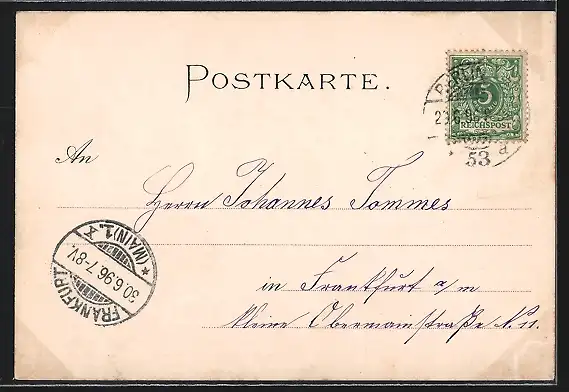 POSTKARTE.
BERLIN
5
REICHSPOST
53
a
An
Herrn Johannes Tommes
FRANKFURT (MAIN) 1. X
30.6.96.7-8V.
in Frankfurt a/m
kleine Obermainstraße N. 11.